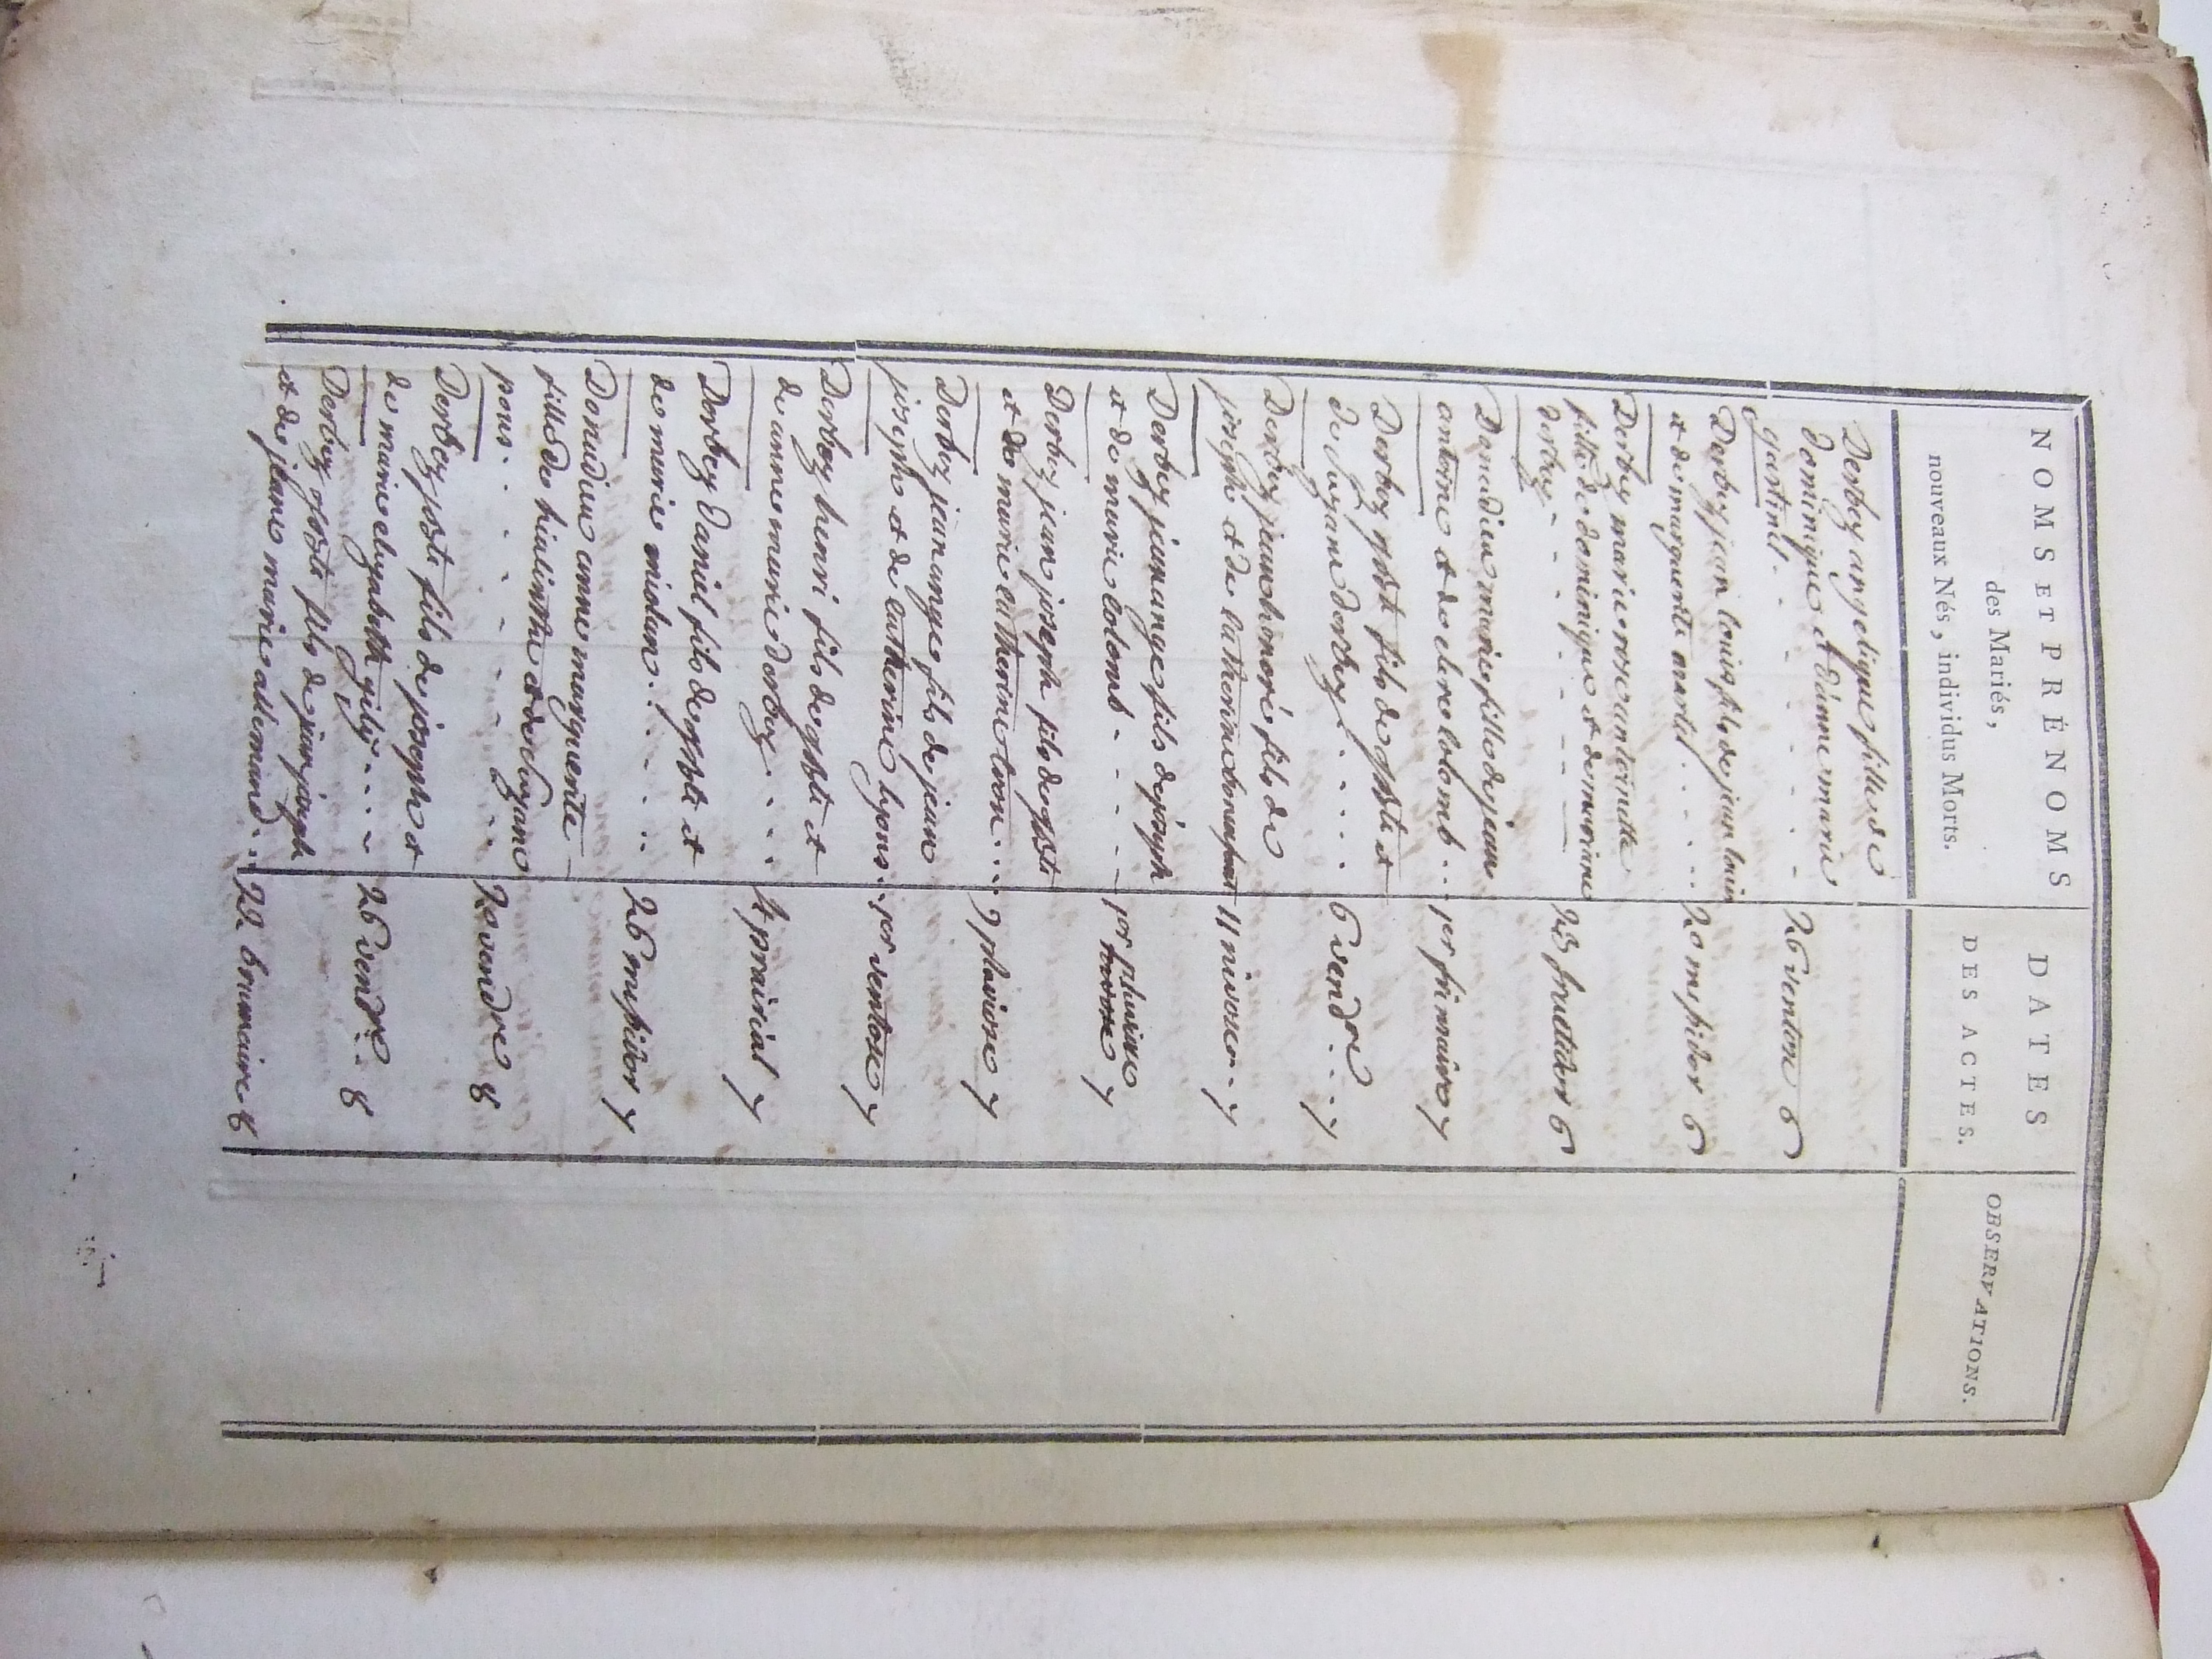 NOMS ET PRÉNOMS
des Mariés,
nouveaux Nés, individus Morts.
DATES
DES ACTES.
OBSERVATIONS.
Derbez angelique fille de
dominique et d'anne marie
gastinel - - - - - 26 ventose 6
Derbez jean louis fils de jean louis
et de marguerite - - - - 20 messidor 6
Derbez marie rose antoinette
fille de dominique et de mariane
derbez - - - - - 23 fructidor 6
Donadieu marie fille de jean
antoine et de claire colomb - - - 1er frimaire 7
Derbez gbst fils de gbste et
de suzane derbez - - - - 6 vendre - - - 7
Derbez jean honoré fils de
joseph et de catherine 11 nivose - - 7
Derbez jean ange fils de joseph
et de marie colomb - - - - 1er pluviose 7
Derbez jean joseph fils de gbste
et de marie catherine - - - 9 pluviose 7
Derbez jean ange fils de jean
joseph et de catherine lyons - - 1er ventose 7
Derbez henri fils de gbste et
de anne marie derbez - - - 14 prairial 7
Derbez daniel fils de gbste et
de marie - - - - 26 messidor 7
Donadieu anne marguerite
fille de hiacinthe et de suzane
pous - - - - - 20 vendre 8
Derbez jbste fils de joseph et
de marie elizabeth gilly - - - 26 vendre - - 8
Derbez gbste fils de jean joseph
et de jeane marie allemand - - - 22 brumaire 8